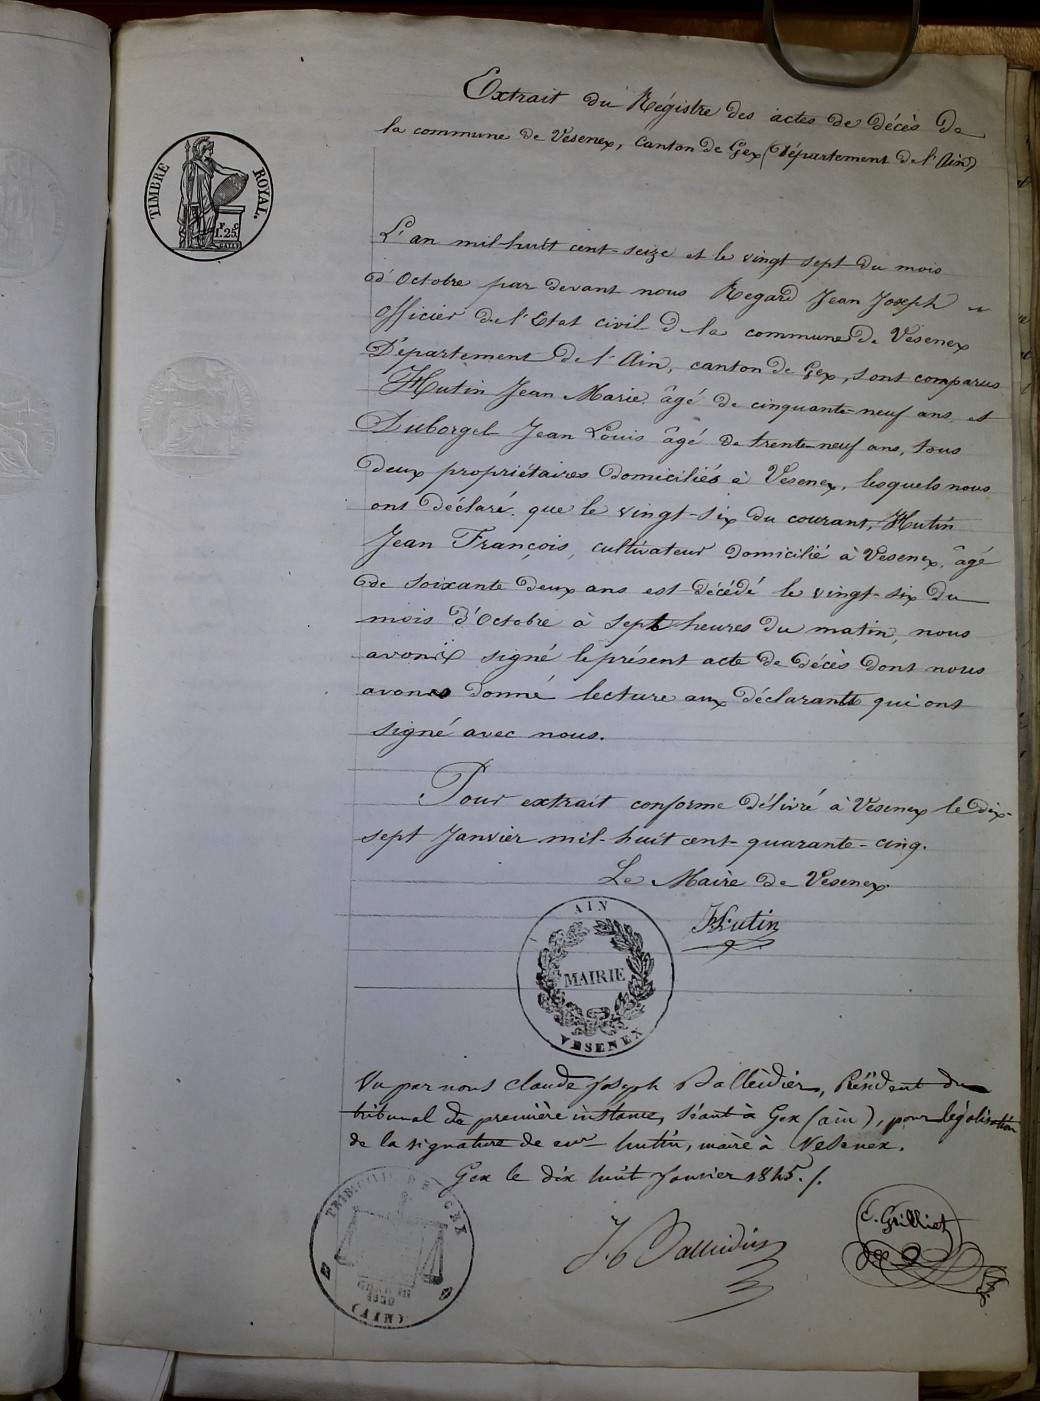 Extrait du Régistre des actes de décès de
la commune de Vesenex, canton de Gex (Département de l'Ain)
TIMBRE ROYAL.
F. C.
1.25
L'an mil huit cent-seize et le vingt sept du mois
d'Octobre par devant nous Regard Jean Joseph
officier de l'Etat civil d la commune de Vesenex
Département de l'Ain, canton de Gex, sont comparus
Hutin Jean Marie âgé de cinquante-neuf ans et
Duborgel Jean Louis âgé de trente-neuf ans, tous
deux propriétaires domiciliés à Vesenex, lesquels nous
ont déclaré que le vingt-six du courant, Hutin
Jean François, cultivateur domicilié à Vesenex, âgé
de soixante deux ans est décédé le vingt-six du
mois d'Octobre à sept heures du matin, nous
avons signé le présent acte de décès dont nous
avons donné lecture aux déclarants qui ont
signé avec nous.
Pour extrait conforme délivré à Vesenex le dix-
sept Janvier mil-huit cent-quarante-cinq.
Le Maire de Vesenex
Hutin
AIN
MAIRIE
VESENEX
Vu par nous Claude Joseph Balleidier, Président du
tribunal de première instance, séant à Gex (ain), pour légalisation
de la signature de eur hutin, maire à Vesenex.
Gex le dix huit Janvier 1845./.
TRIBUNAL DE GEX
1830
(AIN)
J. Balleidier
C. Grilliet